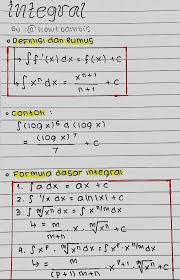 integral
by : @howtbambis
• Definisi dan Rumus
→ ∫ f'(x) dx = f(x) + C
→ ∫ xⁿ dx = xⁿ⁺¹/n+1 + C
• contoh :
∫ (log x)⁶ d (log x)
= (log x)⁷/7 + C
• Formula dasar integral
1. ∫ a dx = ax + C
2. ∫ 1/x dx = a ln|x| + C
3. ∫ ᵐ√xⁿ dx = ∫ xⁿ/ᵐ dx
↳ = m/m+n . x . ᵐ√xⁿ + C
4. ∫ xᵖ . ᵐ√xⁿ dx = ∫ xᵖ . xⁿ/ᵐ dx
↳ = m/(p+1) m+n xᵖ⁺¹ . ᵐ√xⁿ + C